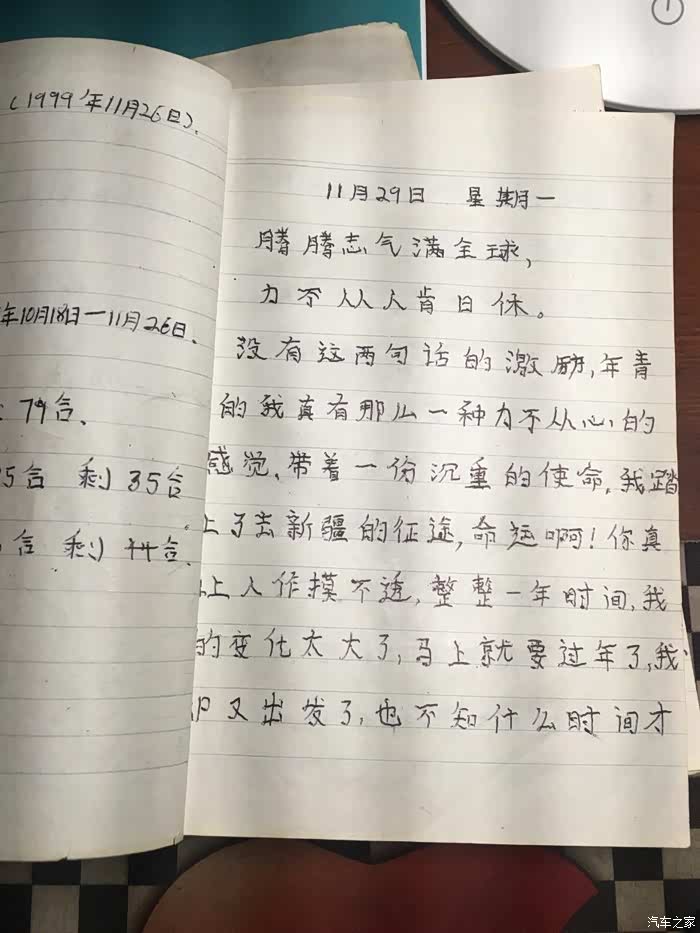 (1999年11月26日).
年10月18日一11月26日.
79台.
5台 剩 35台
台 剩 44台.
11月29日 星期一
腾腾志气满全球,
力不从人肯日休。
没有这两句话的激励,年青
的我真有那么一种力不从心的
感觉、带着一份沉重的使命,我踏
上了去新疆的征途,命运啊!你真
上人作摸不透,整整一年时间,我
的变化太大了,马上就要过年了,我
又出发了,也不知什么时间才
汽车之家